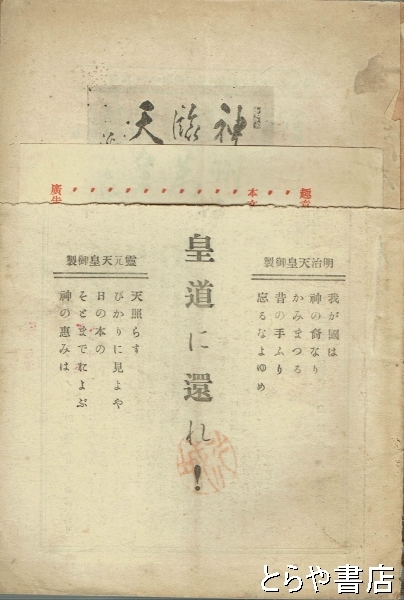 神臨天
趣意
本文
廣告
皇道に還れ!
明治天皇御製
我が國は
神の裔なり
かみまつる
昔の手ふり
忘るなよゆめ
靈元天皇御製
天照らす
ひかりに見よや
日の本の
そとまでおよぶ
神の恵みは
とらや書店